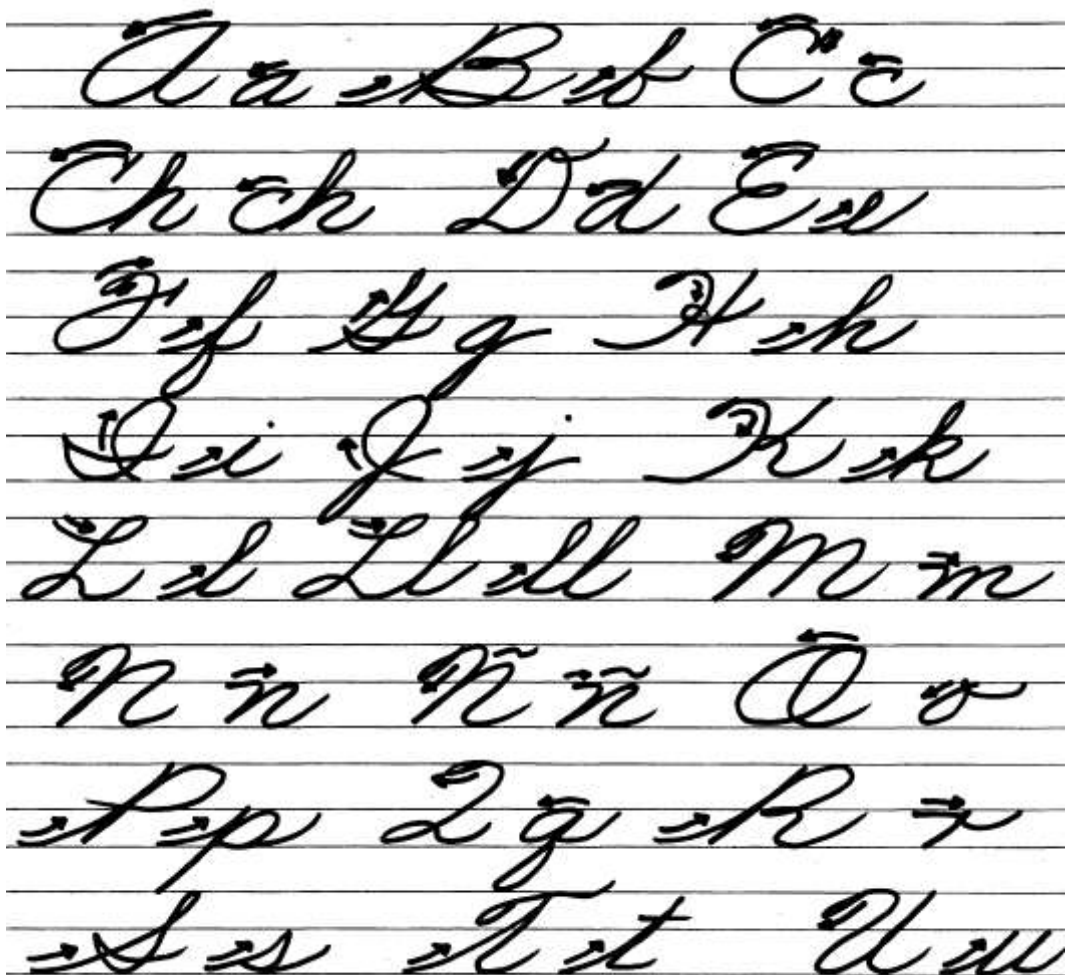 A a B b C c
Ch ch D d E e
F f G g H h
I i J j K k
L l Ll ll M m
N n Ñ ñ O o
P p Q q R r
S s T t U u